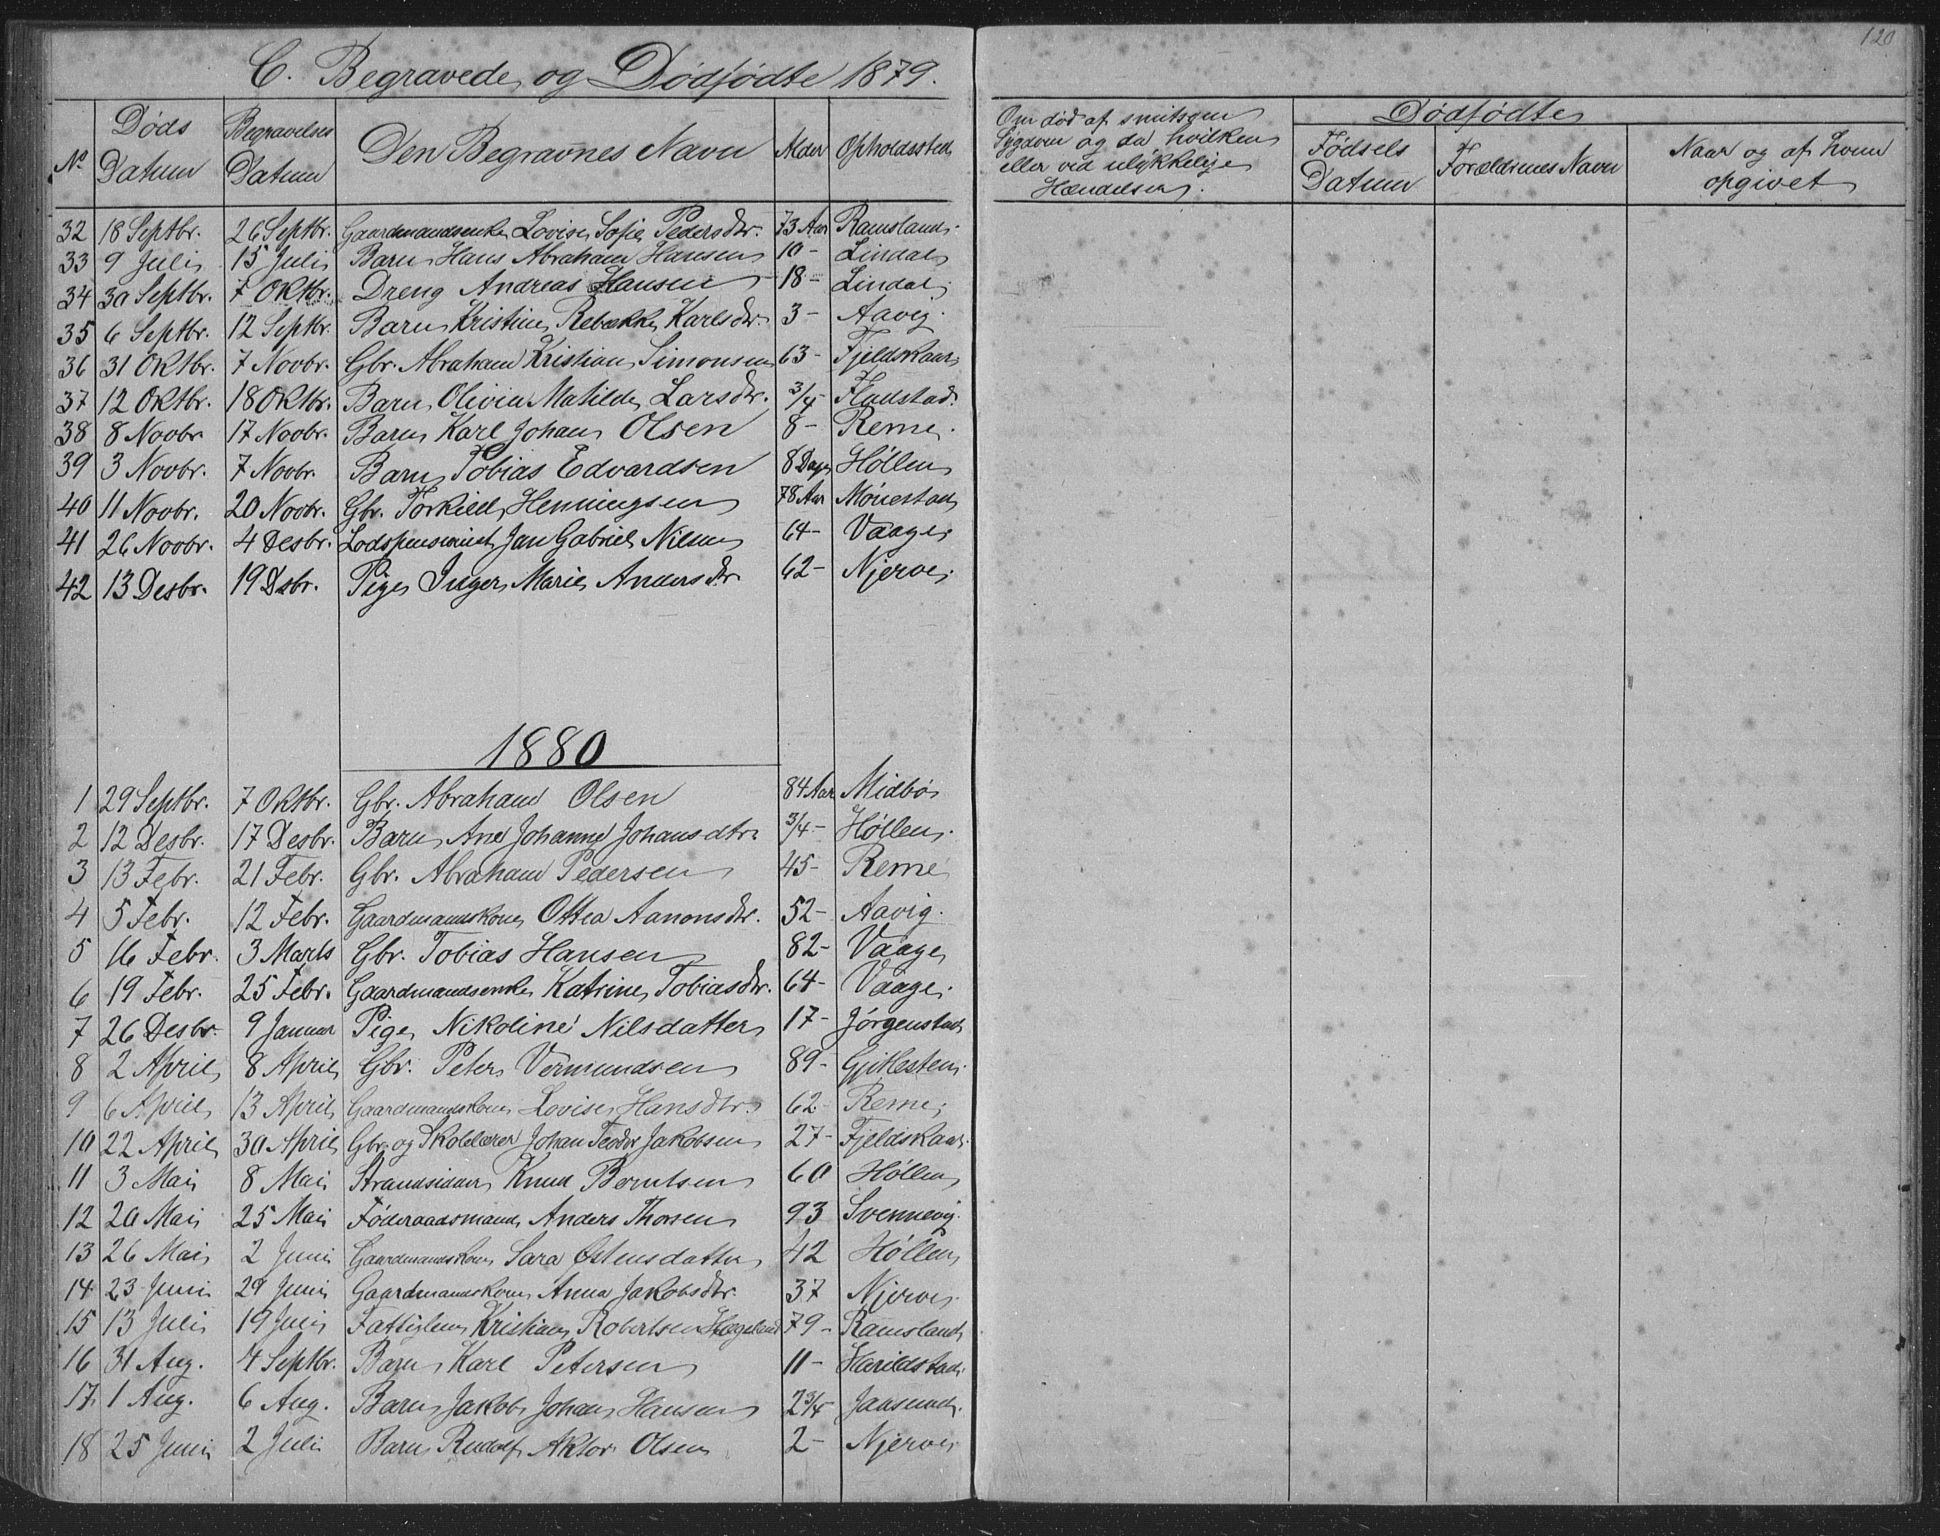 120
C. Begravede og Dødfødte 1879.
No Døds Datum Begravelses Datum Den Begravnes Navn Alder Opholdssted
Om død af smitsom Sygdom og da hvilken eller ved ulykkelige Hændelser.
Dødfødte
Fødsels Datum Forældrenes Navn Naar og af hvem opgivet
32 18 Septbr. 26 Septbr. Gaardmandsenke Lovise Sofie Pedersdtr. 73 Aar Ramsland.
33 9 Juli 15 Juli Barn Hans Abraham Hansen 10 - Lindal
34 30 Septbr. 7 Oktbr. Dreng Andreas Hansen 18 - Lindal
35 6 Septbr. 12 Septbr. Barn Kristine Rebekke Karlsdtr. 3 - Aavig.
36 31 Oktbr. 7 Novbr. Gbr. Abraham Kristian Simonsen 63 - Fjeldskaar
37 12 Oktbr. 18 Oktbr. Barn Olivia Matilde Larsdtr. 3/4 - Fladstad.
38 8 Novbr. 17 Novbr. Barn Karl Johan Olsen 8 - Reme.
39 3 Novbr. 7 Novbr. Barn Tobias Edvardsen 8 Dage Høllen
40 11 Novbr. 20 Novbr. Gbr. Torkild Henningsen 78 Aar Mønestad
41 26 Novbr. 4 Desbr. Lodspensionist Jan Gabriel Nilsen 64 - Vaage
42 13 Desbr. 19 Dsbr. Pige Inger Marie Andersdtr. 62 - Njerve
1880
1 29 Septbr. 7 Oktbr. Gbr. Abraham Olsen 84 Aar Midbø
2 12 Desbr. 17 Desbr. Barn Ane Johanne Johansdtr. 3/4 - Høllen.
3 13 Febr. 21 Febr. Gbr. Abraham Pedersen 45 - Reme
4 5 Febr. 12 Febr. Gaardmandskone Ottea Aanonsdtr. 52 - Aavig.
5 16 Febr. 3 Marts Gbr. Tobias Hansen 82 - Vaage
6 19 Febr. 25 Febr. Gaardmandsenke Katrine Tobiasdtr. 64 - Vaage.
7 26 Desbr. 9 Januar Pige Nikoline Nilsdatter 17 - Jørgenstad
8 2 April 8 April Gbr. Peter Vermundsen 89 - Gjitlesten.
9 6 April 13 April Gaardmandskone Lovise Hansdtr. 62 - Reme
10 22 April 30 April Gbr. og Skolelærer Johan Teodor Jakobsen 27 - Fjeldskaar.
11 3 Mai 8 Mai Strandsidder Knud Berntsen 60 Høllen
12 20 Mai 25 Mai Føderaadsmand Anders Thorsen 93 Svennevig.
13 26 Mai 2 Juni Gaardmandskone Sara Ostensdatter 42 Høllen
14 23 Juni 29 Juni Gaardmandskone Anna Jakobsdtr. 37 Njerve
15 13 Juli 19 Juli Fattiglem Kristian Robertsen Hægeland 79 - Ramsland
16 31 Aug. 4 Septbr. Barn Karl Petersen 11 - Harildstad
17 1 Aug. 6 Aug. Barn Jakob Johan Hansen 2 3/4 Jaasund.
18 25 Juni 2 Juli Barn Rudolf Aktor Olsen 2 - Njerve